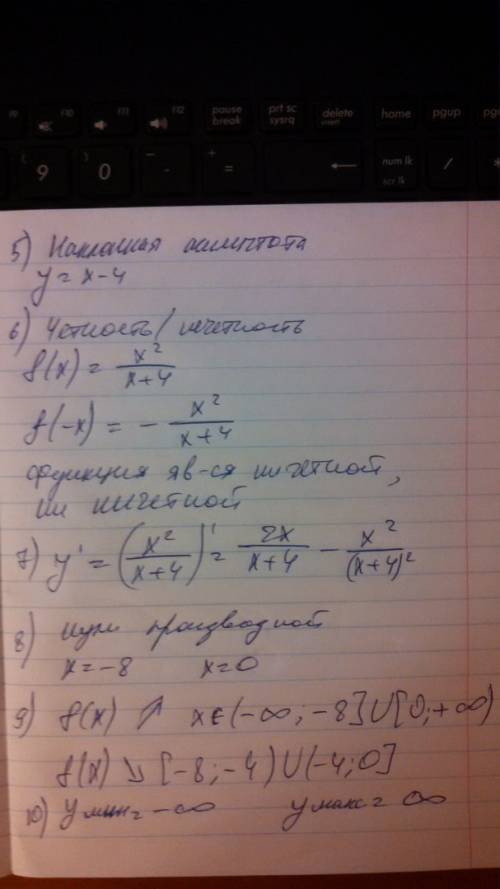 F9 F10 F11 F12 pause break prt sc sysrq delete insert home pgup
( 9 ) 0 _ - + = num lk scr lk / *
5) Наклонная асимптота
y = x-4
6) Четность/нечетность
f(x) = x²/(x+4)
f(-x) = - x²/(x+4)
функция яв-ся ни четной,
ни нечетной
7) y' = (x²/(x+4))' = 2x/(x+4) - x²/(x+4)²
8) нули производной
x=-8 x=0
9) f(x) ↗ x∈(-∞;-8]U[0;+∞)
f(x) ↘ [-8;-4)U(-4;0]
10) y мин= -∞ y макс= ∞